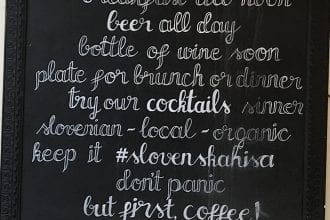 beer all day
bottle of wine soon
plate for brunch or dinner
try our cocktails sinner
slovenian - local - organic
keep it #slovenskahisa
don't panic
but first, coffee!